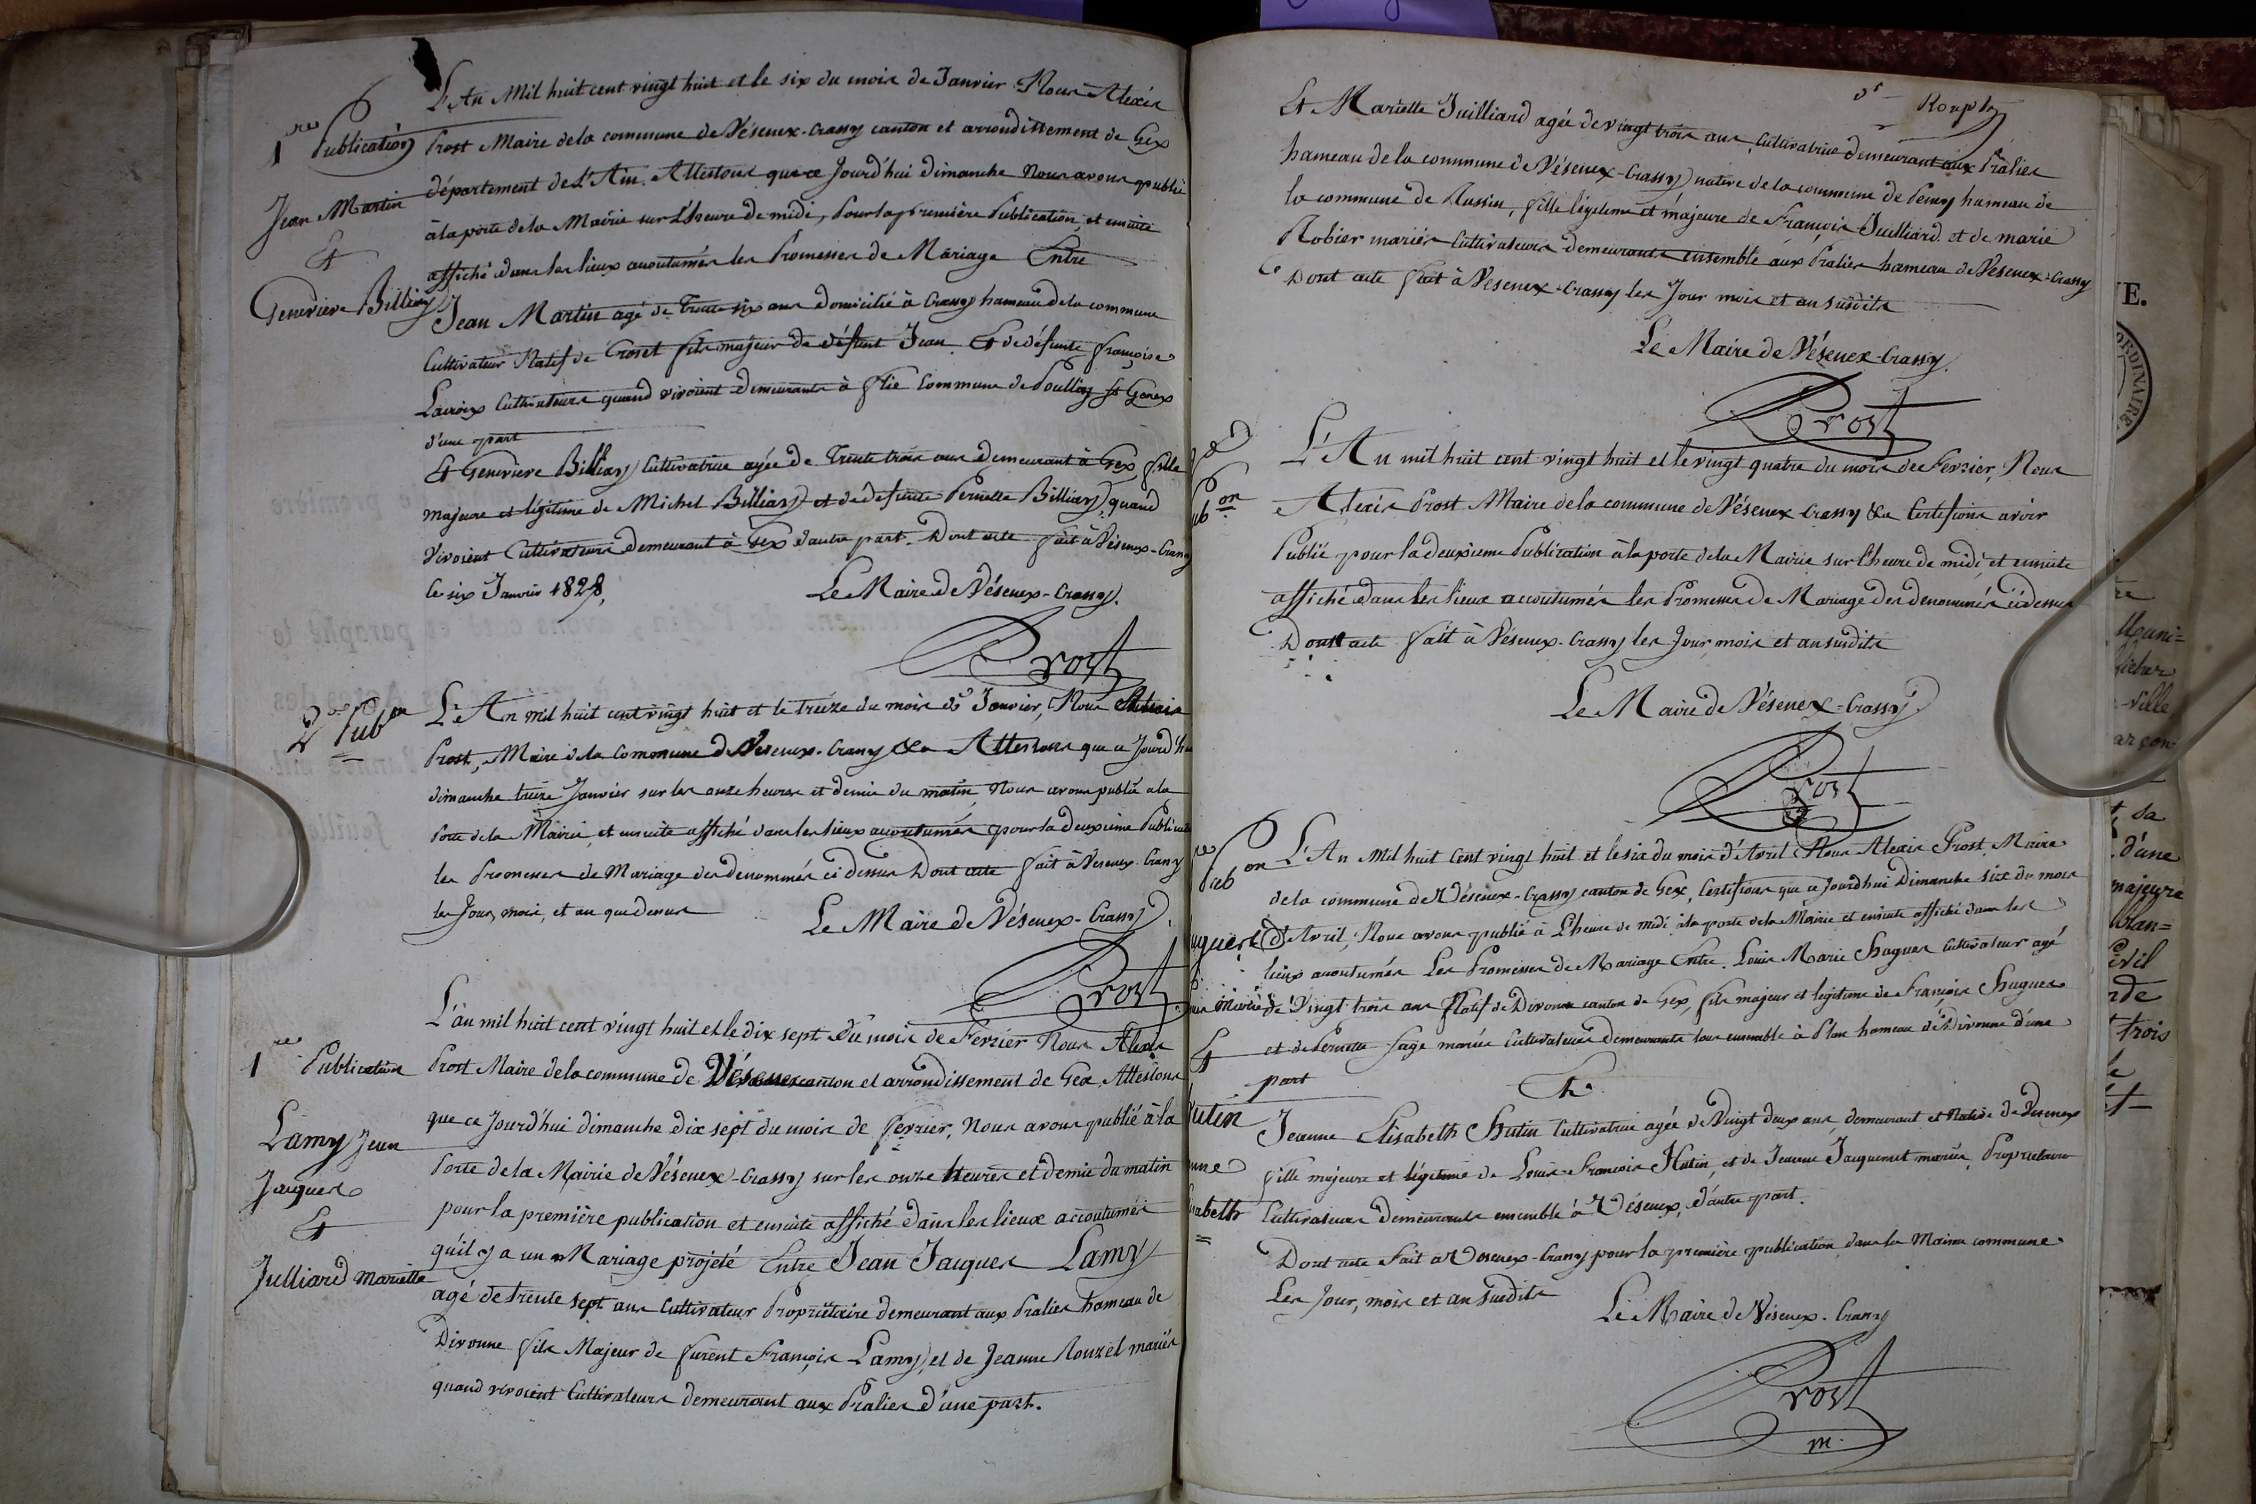 L'An Mil huit cent vingt huit et le six du mois de Janvier Nous Alexis
1re Publication
Prost Maire de la commune de Vésenex-Crassy canton et arrondissement de Gex
département de L'Ain. Attestons que ce Jourd'hui dimanche Nous avons publié
Jean Martin
à la porte de la Mairie sur L'heure de midi, Pour la première Publication, et ensuite
Et
affiché dans les lieux accoutumés les Promesses de Mariage Entre
Genevieve Billiary
Jean Martin agé de trente six ans domicilié à Crassy hameau de la commune
Cultivateur Natif de Crozet fils majeur de défunt Jean Et de défunte françoise
Lacroix Cultivateurs quand vivoient demeurants à flie Commune de Pouilly St Genex
d'une part
Et Genevieve Billiary Cultivatrice agée de Trente trois ans demeurant à Gex fille
majeure et légitime de Michel Billiary et de défunte Pernette Billiary quand
vivoient Cultivateurs demeurant à Gex d'autre part. Dont acte fait à Vésenex-Crassy
le six Janvier 1828,
Le Maire de Vésenex-Crassy.
Prost
2e Pubon
L'An mil huit cent vingt huit et le treize du mois de Janvier, Nous Alexis
Prost, Maire de la Commune de Vésenex-Crassy &a Attestons que ce Jourd'hui
dimanche treize Janvier sur les onze heures et demie du matin Nous avons publié a la
Porte de la Mairie, et ensuite affiché dans les lieux accoutumés pour la deuxième Publication
les Promesses de Mariage des denommés ci dessus Dont acte fait à Vesenex-Crassy
les Jour, mois, et an que dessus
Le Maire de Vésenex-Crassy.
Prost
L'an mil huit cent vingt huit et le dix sept du mois de Fevrier Nous Alexis
1re Publication
Prost Maire de la commune de Vésenex canton et arrondissement de Gex, Attestons
que ce Jourd'hui dimanche dix sept du mois de fevrier, Nous avons publié à la
Lamy Jean
Porte de la Mairie de Vésenex-Crassy sur les onze heures et demie du matin
Jacques
pour la première publication et ensuite affiché dans les lieux accoutumés
Et
qu'il y a un Mariage projeté Entre Jean Jacques Lamy
Julliard Mariette
agé de trente sept ans Cultivateur Propriétaire demeurant aux Pralies hameau de
Divonne fils Majeur de furent François Lamy, et de Jeanne Rouzet mariés
quand vivoient Cultivateurs demeurant aux Pralies d'une part.
Et Mariette Juilliard agée de vingt trois ans, Cultivatrice demeurant aux Pralies
hameau de la commune de Vésenex-Crassy, native de la commune de Peney hameau de
la commune de Russin, fille légitime et majeure de François Juilliard et de marie
Robier mariés Cultivateurs demeurants ensemble aux Pralies hameau de Vésenex-Crassy
Dont acte fait à Vesenex-Crassy les Jour mois et an susdits
Le Maire de Vésenex-Crassy.
Prost
L'An mil huit cent vingt huit et le vingt quatre du mois de Fevrier, Nous
Alexis Prost Maire de la commune de Vésenex Crassy &a Certifions avoir
Publié pour la deuxieme Publication à la porte de la Mairie sur l'heure de midi, et ensuite
affiché dans les lieux accoutumés les Promesses de Mariage des denommés ci dessus
Dont acte fait à Vésenex-Crassy les Jour, mois et an susdits
Le Maire de Vésenex-Crassy.
Prost
L'An Mil huit Cent vingt huit et le six du mois d'Avril Nous Alexis Prost Maire
de la commune de Vésenex-Crassy canton de Gex, Certifions que ce Jourd'hui Dimanche six du mois
d'Avril, Nous avons publié à L'heure de midi à la porte de la Mairie et ensuite affiché dans les
lieux accoutumés Les Promesses de Mariage Entre. Louis Marie Hugues Cultivateur agé
de Vingt trois ans Natif de Divonne canton de Gex, fils majeur et legitime de François Hugues
et de Pernette Sage mariés Cultivateurs demeurants tous ensemble à Plan hameau de Divonne d'une
part
Et
Jeanne Elisabeth Hutin Cultivatrice agée de Vingt deux ans, demeurant et Native de Vesenex
fille majeure et légitime de Louis-François Hutin, et de Jeanne Jacquemet mariés, Propriétaires
Cultivateurs demeurants ensemble à Vésenex, d'autre part.
Dont acte Fait à Vesenex-Crassy pour la première publication dans la Maison commune
Les Jour, mois et an susdits
Le Maire de Vésenex-Crassy
Prost
m.